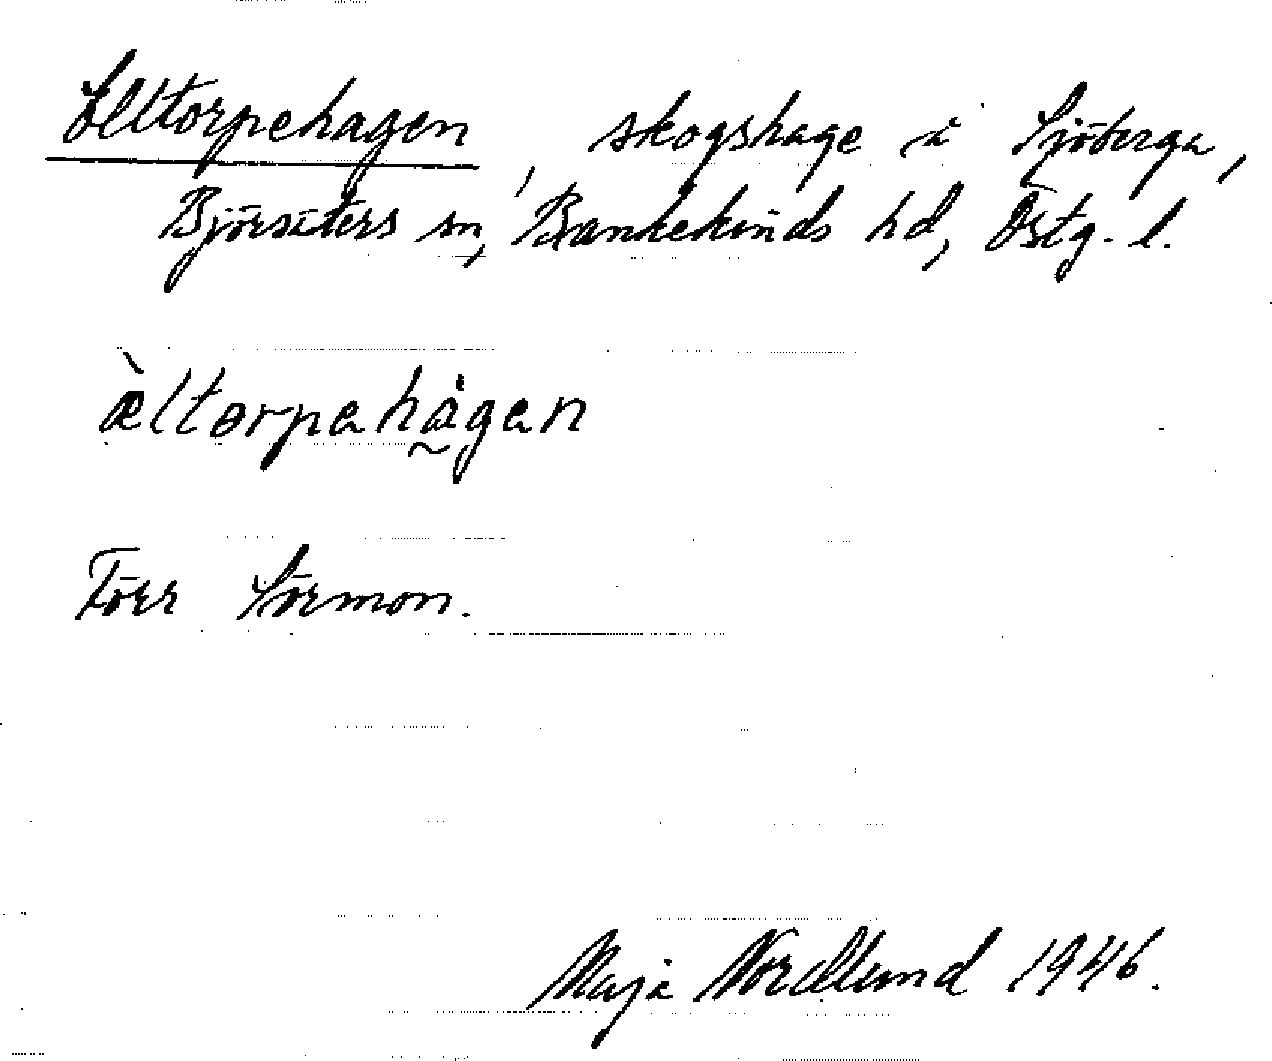 Elltorpehagen, skogshage å Sjöberga,
Björsäters sn, Bankekinds hd, Östg. l.
æ̀ltorpahågan
Förr Sörmon.
Maja Nordlund 1946.